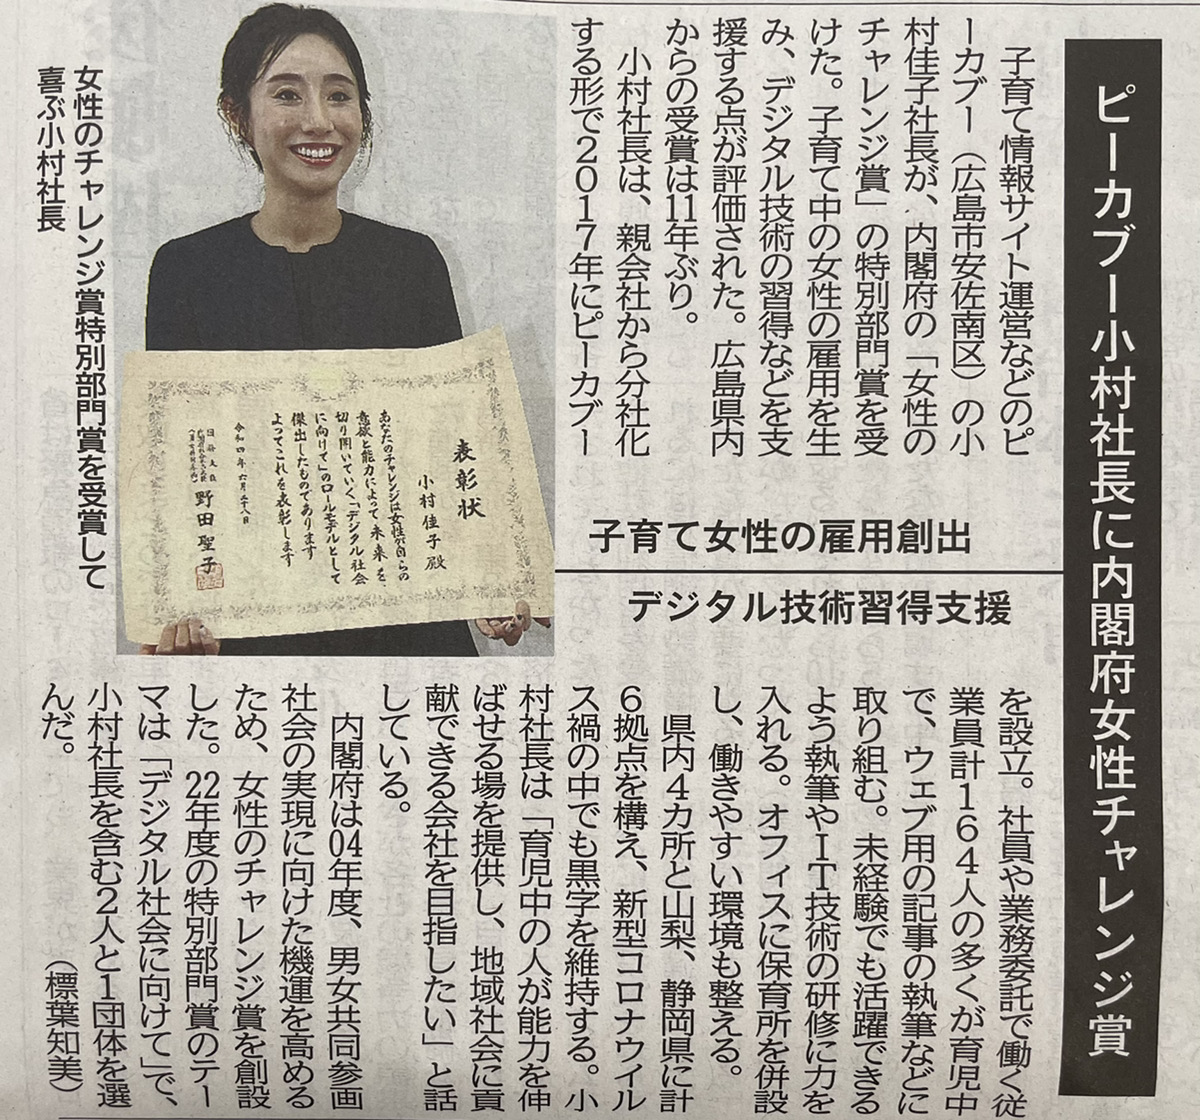 ピーカブー小村社長に内閣府女性チャレンジ賞
子育て女性の雇用創出
デジタル技術習得支援
子育て情報サイト運営などのピ
ーカブー（広島市安佐南区）の小
村佳子社長が、内閣府の「女性の
チャレンジ賞」の特別部門賞を受
けた。子育て中の女性の雇用を生
み、デジタル技術の習得などを支
援する点が評価された。広島県内
からの受賞は11年ぶり。
小村社長は、親会社から分社化
する形で2017年にピーカブー
を設立。社員や業務委託で働く従
業員計164人の多くが育児中
で、ウェブ用の記事の執筆などに
取り組む。未経験でも活躍できる
よう執筆やIT技術の研修に力を
入れる。オフィスに保育所を併設
し、働きやすい環境も整える。
県内4カ所と山梨、静岡県に計
6拠点を構え、新型コロナウイル
ス禍の中でも黒字を維持する。小
村社長は「育児中の人が能力を伸
ばせる場を提供し、地域社会に貢
献できる会社を目指したい」と話
している。
内閣府は04年度、男女共同参画
社会の実現に向けた機運を高める
ため、女性のチャレンジ賞を創設
した。22年度の特別部門賞のテー
マは「デジタル社会に向けて」で、
小村社長を含む2人と1団体を選
んだ。
（標葉知美）
女性のチャレンジ賞特別部門賞を受賞して
喜ぶ小村社長
表彰状
小村佳子殿
あなたのチャレンジは女性が自らの
意欲と能力によって未来を
切り開いていく「デジタル社会
に向けて」のロールモデルとして
傑出したものであります
よってこれを表彰します
令和四年六月二十八日
野田聖子